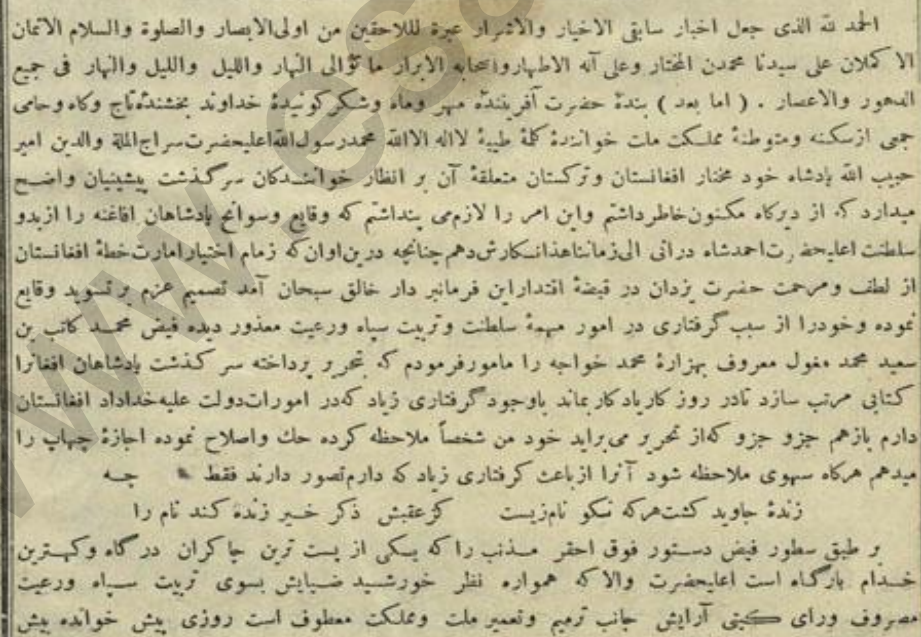 الحمد لله الذی جعل اخبار سابقی الاخیار والاشرار عبرة لللاحقین من اولی‌الابصار والصلوة والسلام الاتمان
الا کملان علی سیدنا محمدن المختار وعلی آله الاطهار واصحابه الابرار ما توالی النهار واللیل واللیل والنهار فی جمیع
الدهور والاعصار . ( اما بعد ) بندهٔ حضرت آفریننده مهر وماه وشکر کوئیدهٔ خداوند بخشندهٔ تاج وکاه وحامی
جمعی ازسکنه ومتوطنهٔ مملکت مات خوانندهٔ کلمهٔ طیبهٔ لااله الاالله محمدرسول‌الله اعلیحضرت سراج‌الملة والدین امیر
حبیب الله پادشاه خود مختار افغانستان وترکستان متعلقهٔ آن بر انظار خوانندکان سرکذشت پیشینیان واضح
میدارد که از دیرکاه مکنون خاطر داشتم واین امر را لازم می پنداشتم که وقایع وسوانح پادشاهان افاغنه را ازبدو
سلطنت اعلیحضرت احمدشاه درانی الی زماننا هذا نکارش دهم چنانچه درین اوان که زمام اختیار امارت خطهٔ افغانستان
از لطف ومرحمت حضرت یزدان در قبضهٔ اقتدار این فرمانبر دار خالق سبحان آمد تصمیم عزم بر تسوید وقایع
نموده وخودرا از سبب گرفتاری در امور مهمهٔ سلطنت وتربیت سپاه ورعیت معذور دیده فیض محمد کاتب بن
سعید محمد مغول معروف بهزارهٔ محمد خواجه را مامور فرمودم که بتحریر پرداخته سر کذشت پادشاهان افغانرا
کتابی مرتب سازد تادر روز کار یادکار بماند باوجود گرفتاری زیاد که در امورات دولت علیه خداداد افغانستان
دارم بازهم جزو جزو که از تحریر می براید خود من شخصاً ملاحظه کرده حك واصلاح نموده اجازهٔ چهاپ را
میدهم هرکاه سهوی ملاحظه شود آنرا ازباعث کرفتاری زیاد که دارم تصور دارند فقط چه
زندهٔ جاوید کشت هرکه نکو نام زیست کزعقبش ذکر خیر زنده کند نام را
بر طبق سطور فیض دستور فوق احقر مذنب را که یکی از پست ترین چاکران درگاه وکهترین
خدام بارگاه است اعلیحضرت والا که همواره نظر خورشید ضیایش بسوی تربیت سپاه ورعیت
مصروف ورای کیتی آرایش جانب ترمیم وتعمیر ملت ومملکت معطوف است روزی پیش خوانده پیش